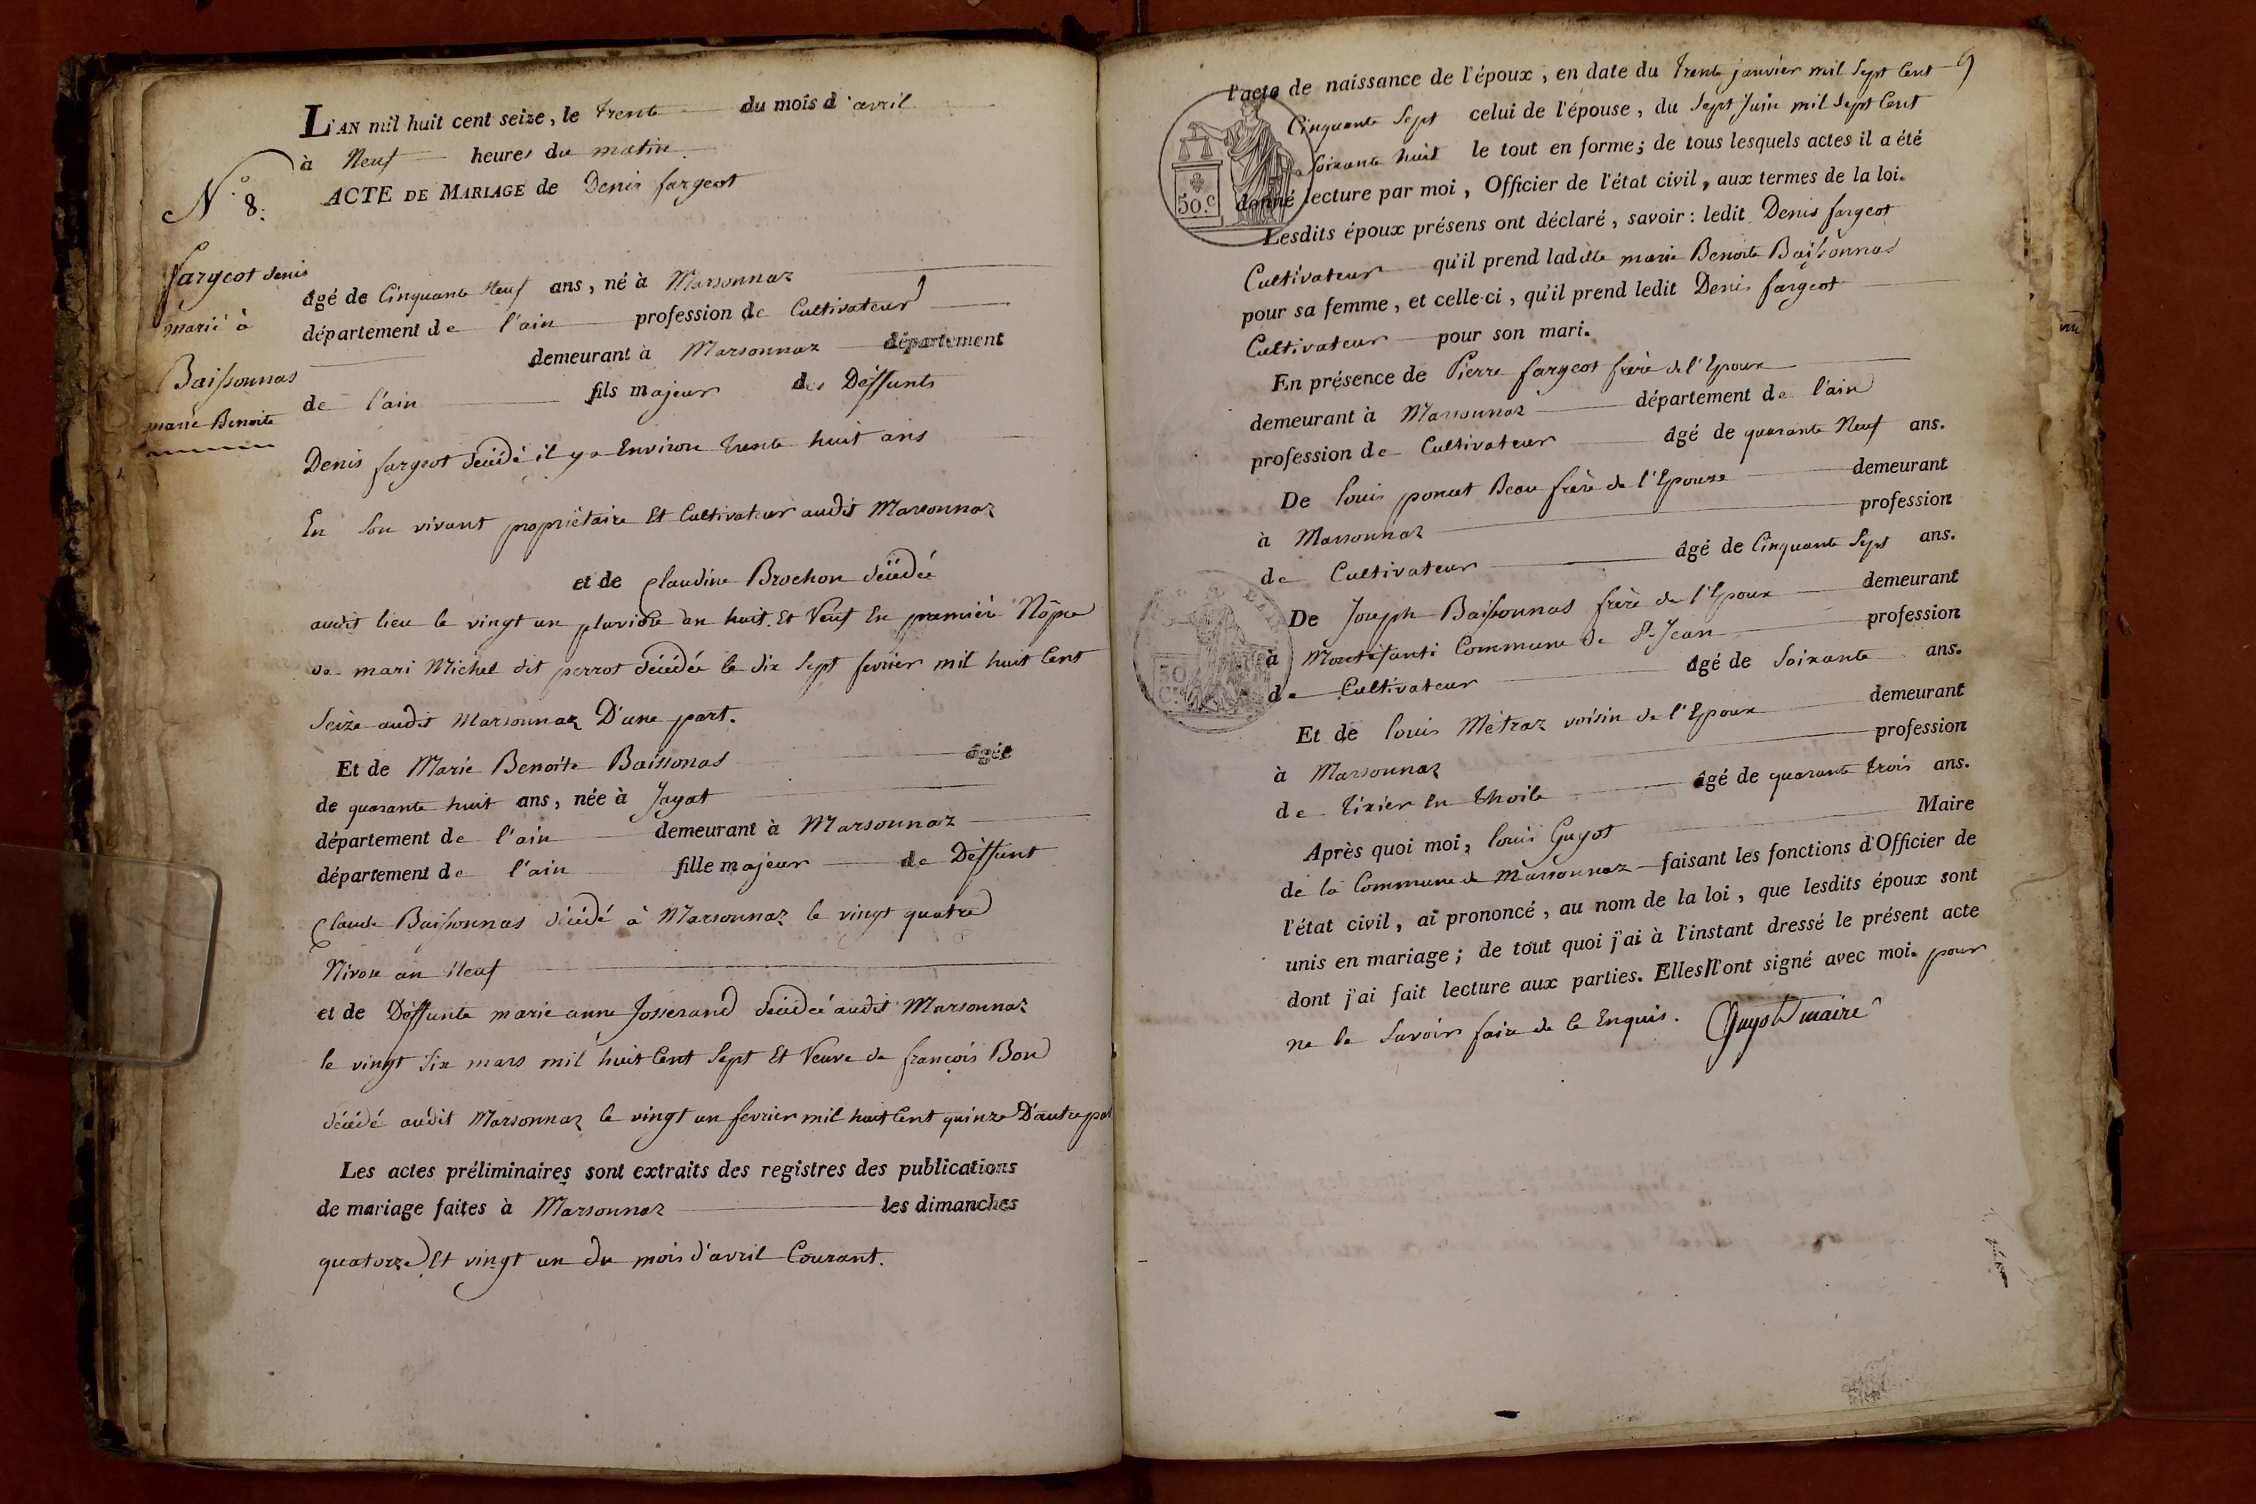 L'AN mil huit cent seize, le trente du mois d'avril
à Neuf heures du matin
N.° 8.
ACTE DE MARIAGE de Denis fargeot
fargeot denis
marié à
Baissonnas
marie Benoite
âgé de Cinquante Neuf ans, né à Marsonnaz
département de l'ain profession de Cultivateur
demeurant à Marsonnaz département
de l'ain fils majeur des Deffunts
Denis fargeot décédé il y a Environ trente huit ans
En son vivant propriétaire Et Cultivateur audit Marsonnaz
et de Claudine Brochon décédée
audit lieu le vingt un pluviose an huit. Et Veuf En premiere Nôpce
de mari Michel dit perrot décédée le dix Sept fevrier mil huit Cent
Seize audit Marsonnaz D'une part.
Et de Marie Benoite Baissonas âgée
de quarante huit ans, née à Jayat
département de l'ain demeurant à Marsonnaz
département de l'ain fille majeur de Deffunt
Claude Baissonnas décédé à Marsonnaz le vingt quatre
Nivose an Neuf
et de Deffunte marie anne Josserand décédée audit Marsonnaz
le vingt Six mars mil huit Cent Sept Et Veuve de françois Bon
décédé audit Marsonnaz le vingt un fevrier mil huit Cent quinze D'autre part
Les actes préliminaires sont extraits des registres des publications
de mariage faites à Marsonnaz les dimanches
quatorze Et vingt un du mois d'avril Courant.
9
l'acte de naissance de l'époux, en date du trente janvier mil Sept Cent
Cinquante Sept celui de l'épouse, du Sept Juin mil Sept Cent
Soixante huit le tout en forme; de tous lesquels actes il a été
donné lecture par moi, Officier de l'état civil, aux termes de la loi.
50.C
Lesdits époux présens ont déclaré, savoir: ledit Denis fargeot
Cultivateur qu'il prend ladite marie Benoite Baissonnas
pour sa femme, et celle-ci, qu'il prend ledit Denis fargeot
Cultivateur pour son mari.
En présence de Pierre fargeot frère de l'Epoux
demeurant à Marsonnaz département de l'ain
profession de Cultivateur âgé de quarante Neuf ans.
De Louis poncet Beau frère de l'Epouse demeurant
à Marsonnaz profession
de Cultivateur âgé de Cinquante Sept ans.
De Joseph Baissonnas frère de l'Epoux demeurant
à Montefanti Commune de St. Jean profession
50
C.
de Cultivateur âgé de Soixante ans.
Et de Louis Métraz voisin de l'Epoux demeurant
à Marsonnaz profession
de tixier En thoile âgé de quarante trois ans.
Après quoi moi, Louis Guyot Maire
de la Commune de Marsonnaz faisant les fonctions d'Officier de
l'état civil, ai prononcé, au nom de la loi, que lesdits époux sont
unis en mariage; de tout quoi j'ai à l'instant dressé le présent acte
dont j'ai fait lecture aux parties. Elles N'ont signé avec moi. pour
ne le Savoir faire de ce Enquis. Guyot maire